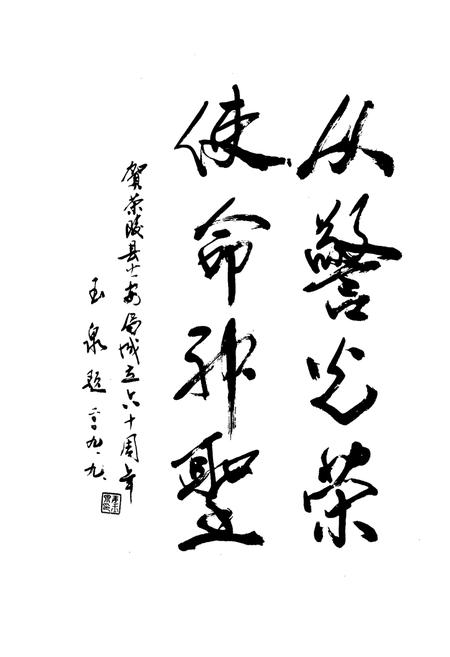 从警光荣
使命神聖
贺茶陵县公安局成立六十周年
玉泉题 二〇〇九.九.